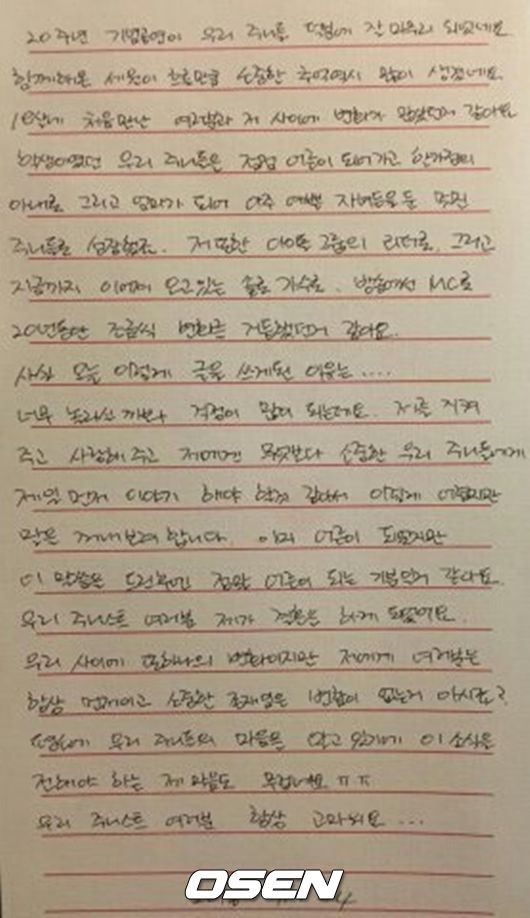 20주년 기념공연이 우리 주니들 덕분에 잘 마무리 되었네요.
함께해온 세월이 흐른만큼 소중한 추억역시 많이 생겼네요.
18살에 처음만난 여러분과 저 사이에 변화가 많았던거 같아요
학생이였던 우리 주니들은 점점 어른이 되어가고 한가정의
아내로 그리고 엄마가 되어 아주 예쁜 자녀들을 둔 멋진
주니들로 성장했죠. 저 또한 아이돌 그룹의 리더로, 그리고
지금까지 이어져 오고있는 솔로 가수로, 방송에선 MC로
20년동안 조금씩 변화를 거듭했던거 같아요.
사실 오늘 이렇게 글을 쓰게된 이유는....
너무 놀라실까봐 걱정이 많이 되는데요. 저를 지켜
주고 사랑해 주고 저에겐 무엇보다 소중한 우리 주니들에게
제일먼저 이야기 해야 할것 같아서 이렇게 어렵지만
말은 꺼내보려 합니다. 이미 어른이 되었지만
이 말씀을 드린후엔 정말 어른이 되는 기분인거 같아요.
우리 주니스트 여러분 제가 결혼을 하게 되었어요.
우리 사이에 또하나의 변화이지만 저에게 여러분은
항상 먼저이고 소중한 존재였음은 변함이 없는거 아시죠?
때문에 우리 주니들의 마음을 알고 있기에 이 소식을
전해야 하는 제 마음도 무겁네요 ㅠㅠ
우리 주니스트 여러분 항상 고마워요...
OSEN